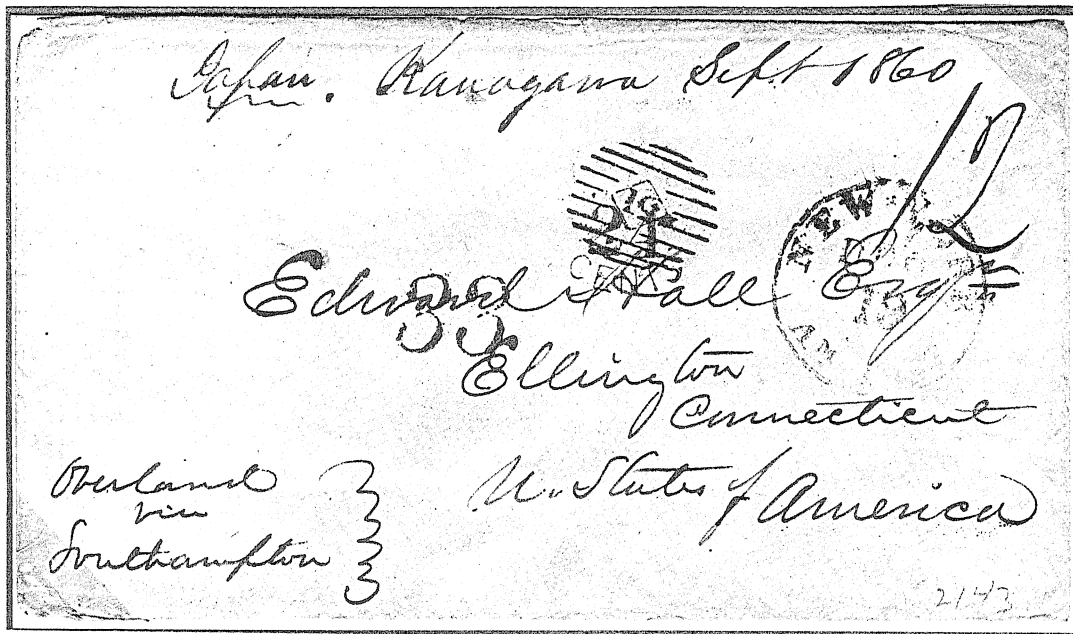 Japan. Kanagawa Sept 1860
12
NEW
AM
33
Edward Hall Esq
Ellington
Connecticut
U. States of America
Overland
via
Southampton
2143